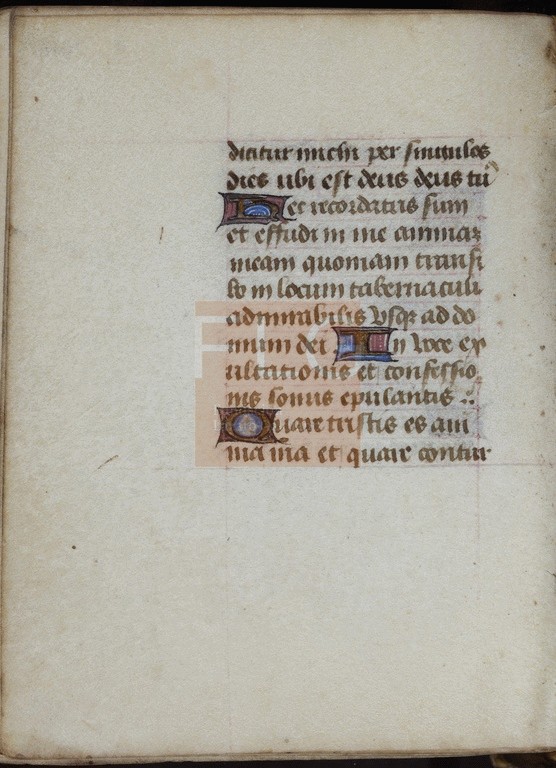 dicitur michi per singulos
dies ubi est deus deus tu͂
Hec recordatus sum
et effudi in me animaʒ
meam quoniam transi
bo in locum tabernaculi
admirabilis vsqꝫ ad do
mum dei In voce ex
ultationis et confessio
nis sonus epulantis
Quare tristis es ani
ma ma et quare contur